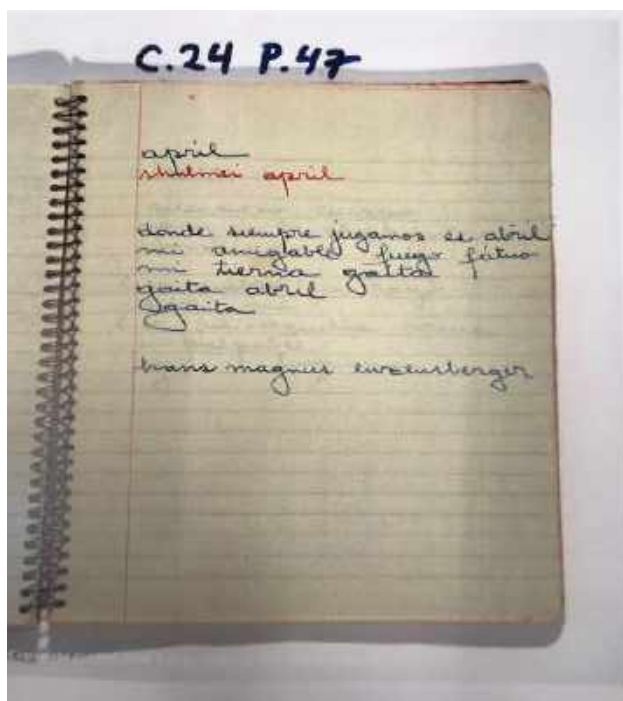 C.24 P.47
april
april
donde siempre jugamos es abril
mi amigable fuego fatuo
mi tierna gaita
gaita abril
gaita
hans magnus enzensberger